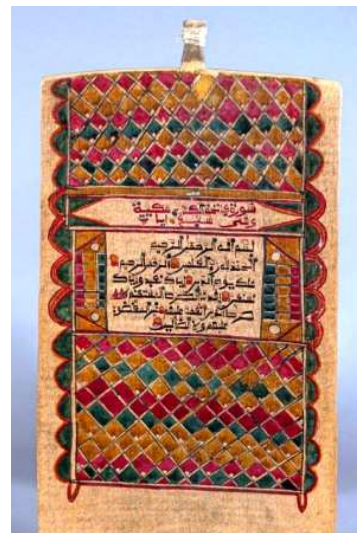 بسم الله الرحمن الرحيم
الحمد لله رب العلمين الرحمن الرحيم
ملك يوم الدين اياك نعبد واياك
نستعين اهدنا الصرط المستقيم
صرط الذين انعمت عليهم غير المغضوب
عليهم ولا الضالين